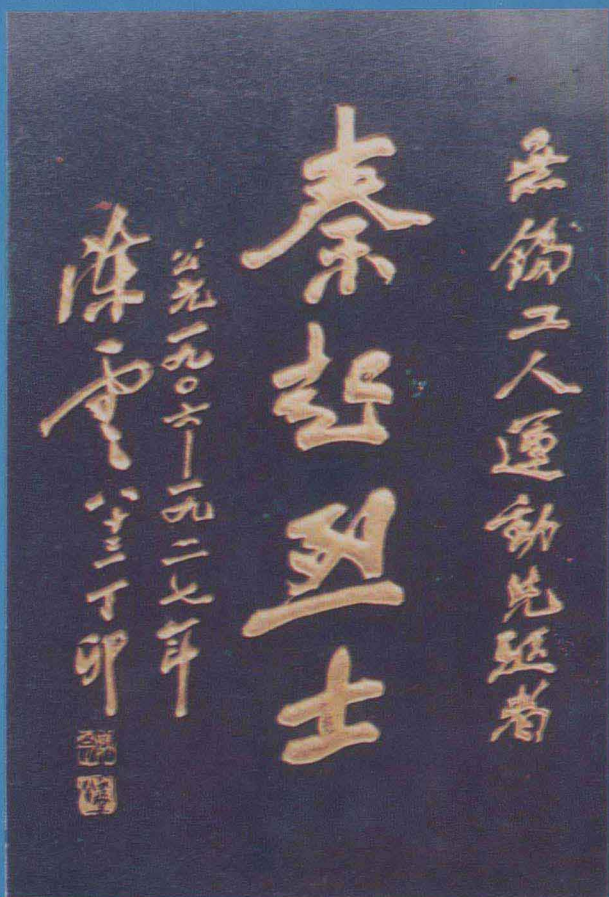 無錫工人運動先驱者
秦起烈士
公元一九〇六—一九二七年
陳雲 八十三 丁卯